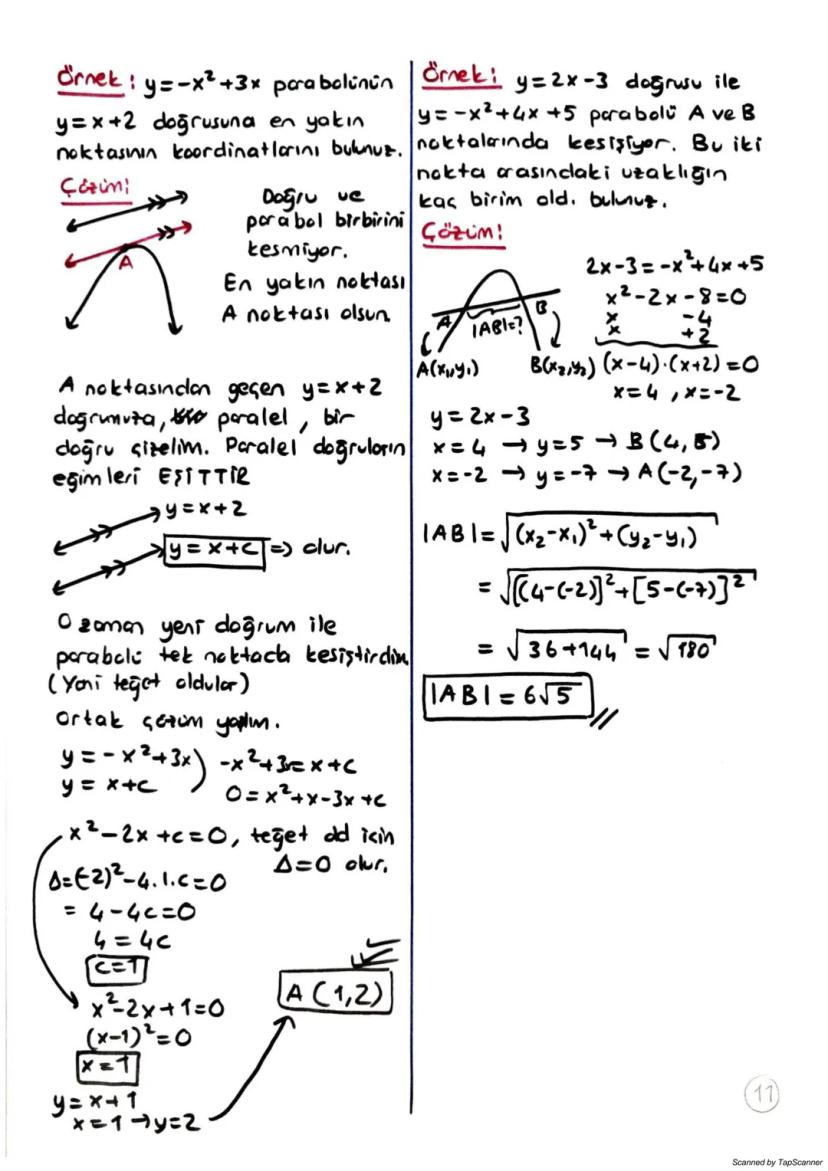 Örnek: y=-x²+3x parabolünün
y=x+2 doğrusuna en yakın
noktasının koordinatlarını bulunuz.
Çözüm:
Doğru ve
parabol birbirini
kesmiyor.
En yakın noktası
A noktası olsun.
A
A noktasından geçen y=x+2
doğrumuza, paralel, bir
doğru çizelim. Paralel doğruların
eğimleri EŞİTTİR
y=x+2
y=x+c => olur.
O zaman yeni doğrum ile
parabolü tek noktada kesiştirdim
(Yani teğet oldular)
Ortak çözüm yapalım.
y=-x²+3x) -x²+3=x+c
y=x+c 0=x²+x-3x+c
x²-2x+c=0, teğet old için
Δ=0 olur.
Δ=(-2)²-4.1.c=0
= 4-4c=0
4=4c
c=1
x²-2x+1=0
(x-1)²=0
x=1
y=x+1
x=1→y=2
A(1,2)
Örnek: y=2x-3 doğrusu ile
y=-x²+4x+5 parabolü A ve B
noktalarında kesişiyor. Bu iki
nokta arasındaki uzaklığın
kaç birim old. bulunuz.
Çözüm:
A |AB|=? B
A(x₁,y₁) B(x₂,y₂)
2x-3=-x²+4x+5
x²-2x-8=0
x -4
x +2
(x-4).(x+2)=0
x=4, x=-2
y=2x-3
x=4 → y=5 → B(4,5)
x=-2 → y=-7 → A(-2,-7)
|AB|=√(x₂-x₁)²+(y₂-y₁)
=√[(4-(-2)]²+[5-(-7)]²
=√36+144=√180
|AB|=6√5
11
Scanned by TapScanner